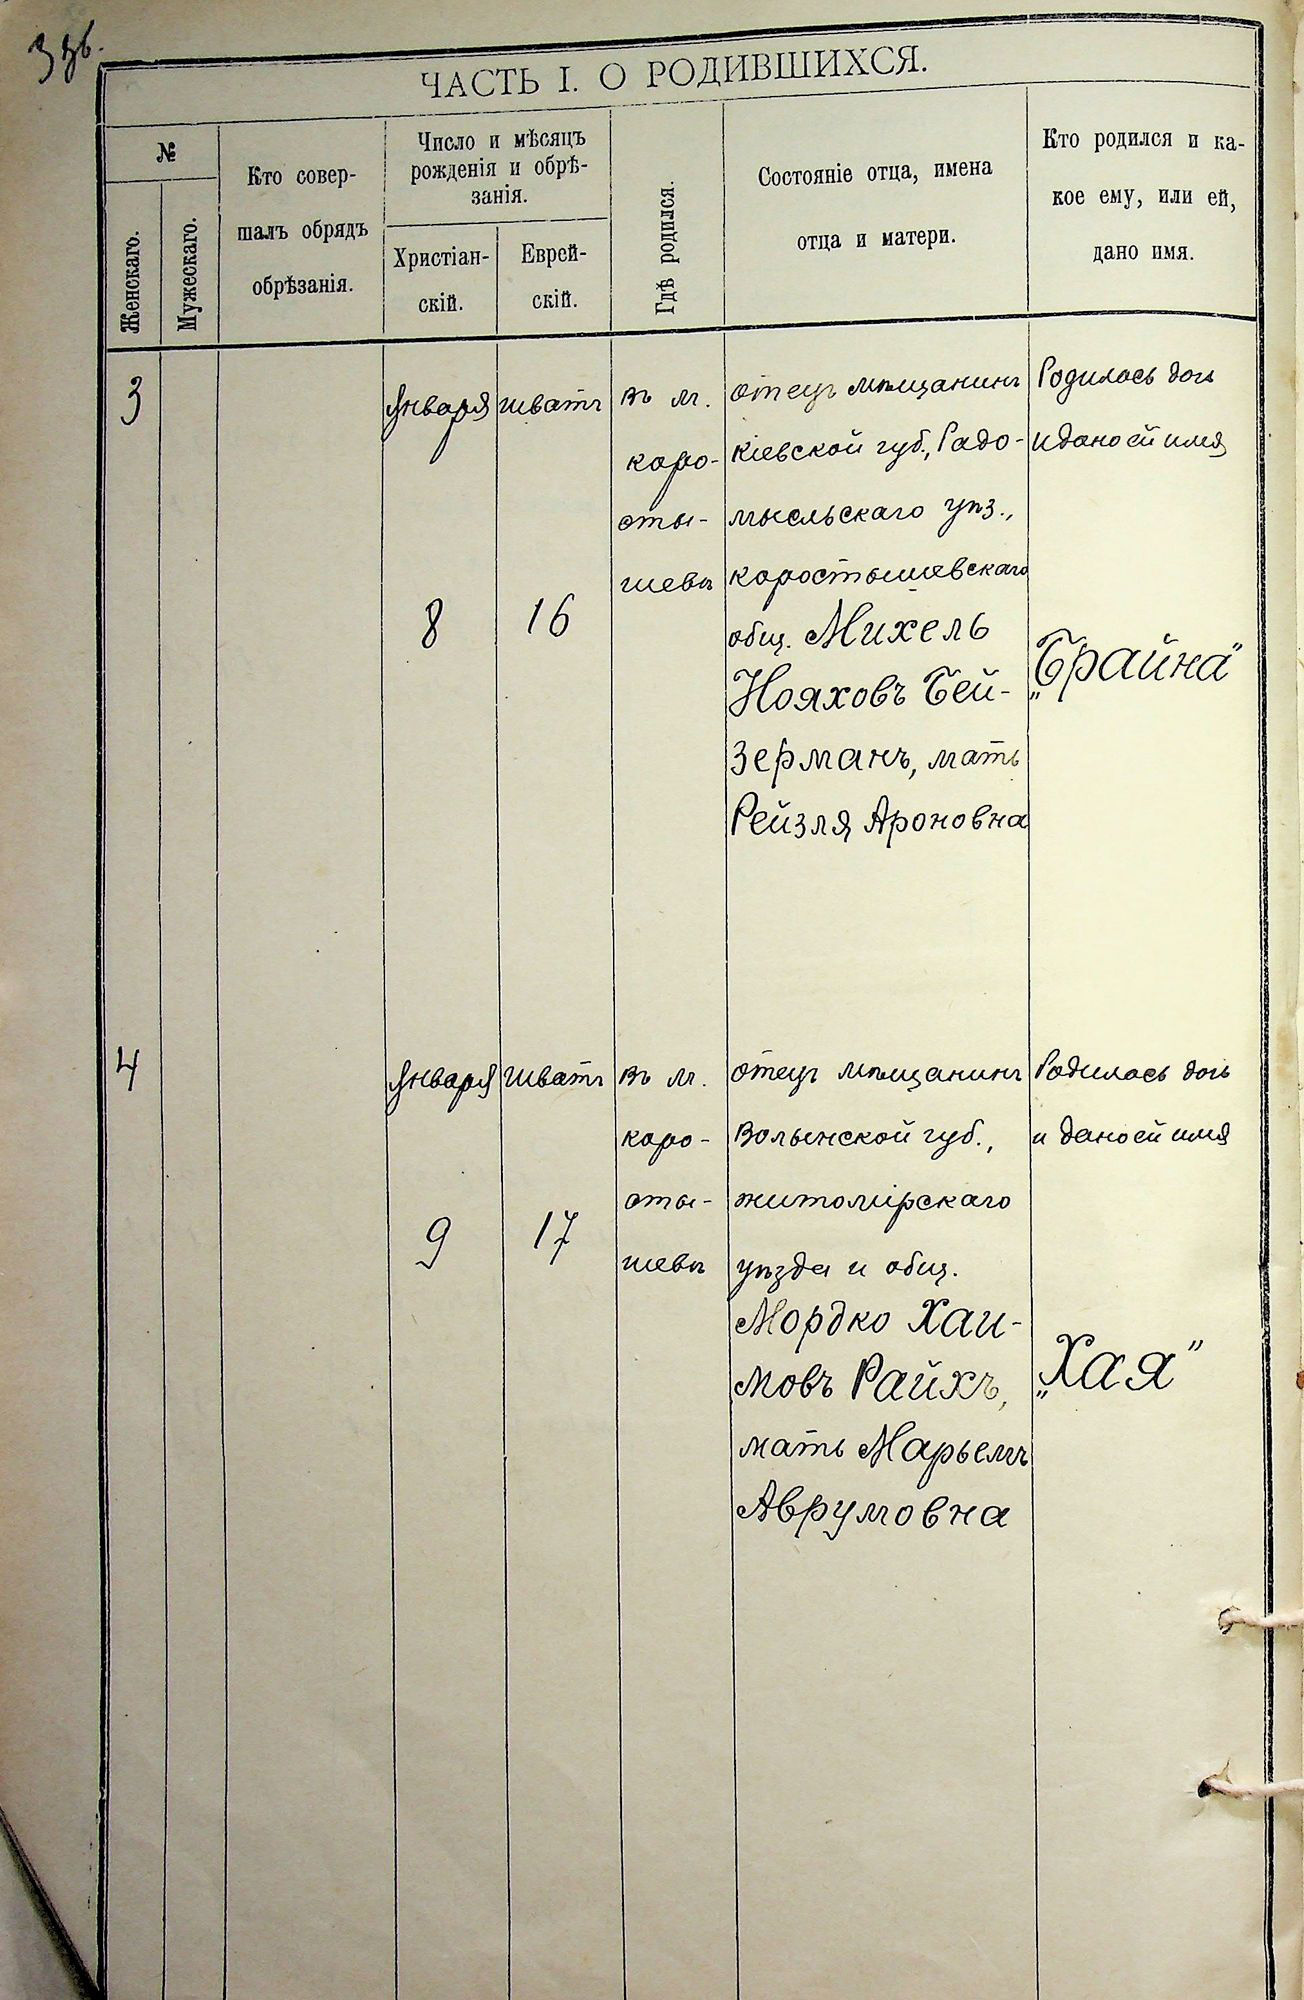 ЧАСТЬ I. О РОДИВШИХСЯ.
№
Женскаго.
Мужескаго.
Кто совер-
шалъ обрядъ
обрѣзанія.
Число и мѣсяцъ
рожденія и обрѣ-
занія.
Христіан-
скій.
Еврей-
скій.
Гдѣ родился.
Состояніе отца, имена
отца и матери.
Кто родился и ка-
кое ему, или ей,
дано имя.
3
Января
8
Шватъ
16
въ м.
Коро-
сты-
шевѣ
Отецъ мѣщанинъ
Кіевской губ., Радо-
мысльскаго уѣз.,
Коростышевскаго
общ. Михель
Нояховъ Бей-
зерманъ, мать
Рейзля Ароновна
Родилась дочь
и дано ей имя
„Брайна"
4
Января
9
Шватъ
17
въ м.
Коро-
сты-
шевѣ
Отецъ мѣщанинъ
Волынской губ.,
Житомірскаго
уѣзда и общ.
Мордко Хаи-
мовъ Райхъ,
мать Марьемъ
Аврумовна
Родилась дочь
и дано ей имя
„Хая"